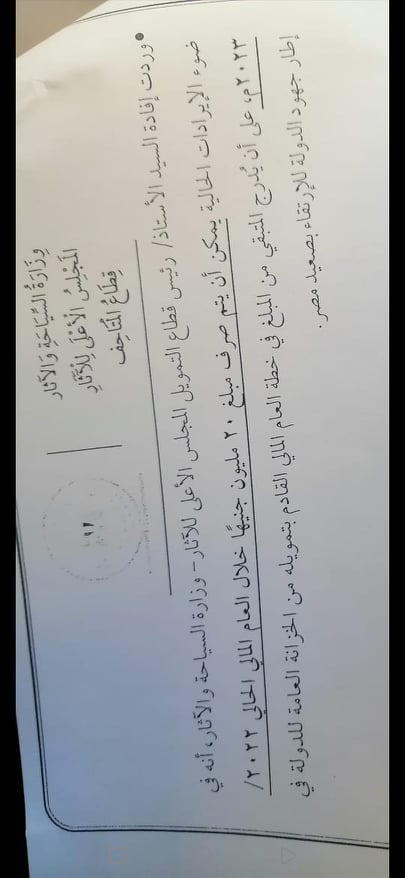 وِزَارَةُ السِّيَاحَةِ وَالآثَارِ
المَجْلِسُ الأَعْلَى لِلآثَارِ
قِطَاعُ المَتَاحِفِ
١٢
• وردت إفادة السيد الأستاذ/ رئيس قطاع التمويل المجلس الأعلى للآثار - وزارة السياحة والآثار، أنه في
ضوء الإيرادات الحالية يمكن أن يتم صرف مبلغ ٢٠ مليون جنيهًا خلال العام المالي الحالي ٢٠٢٢/
٢٠٢٣م، على أن يُدرج المتبقي من المبلغ في خطة العام المالي القادم بتمويله من الخزانة العامة للدولة في
إطار جهود الدولة للإرتقاء بصعيد مصر.